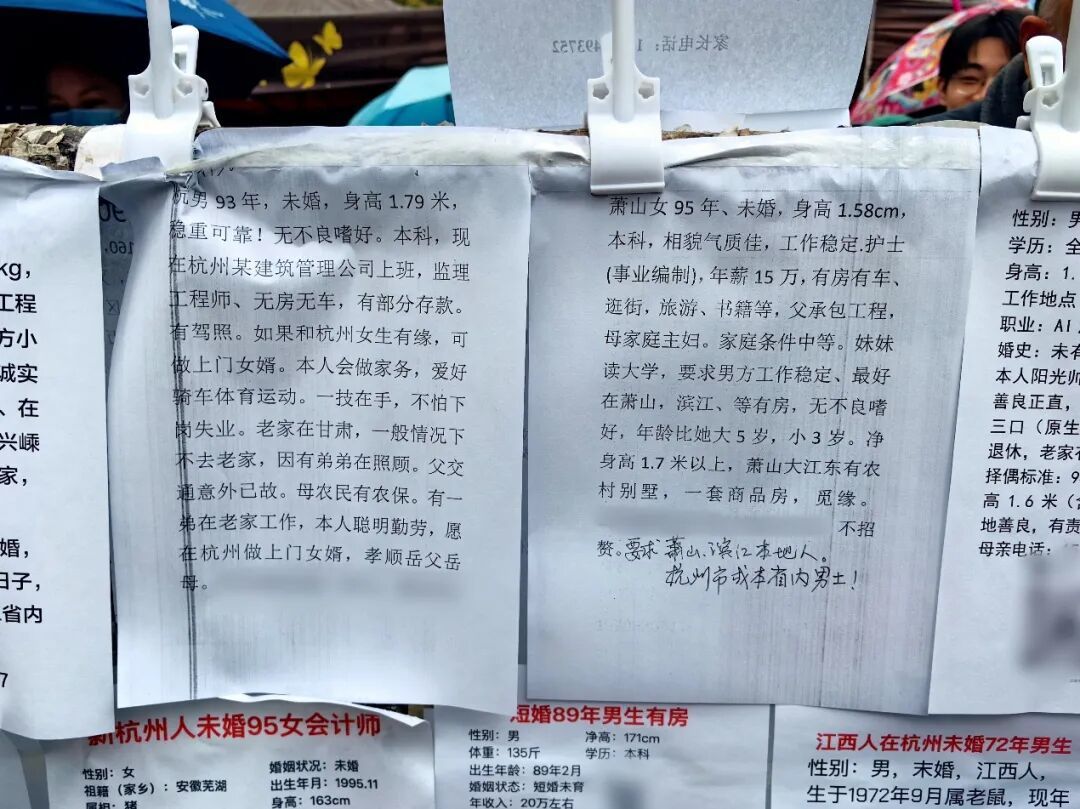 家长电话：1
493752
kg，
工程
方小
诚实
、在
兴嵊
家，
婚，
日子，
省内
7
杭男 93 年，未婚，身高 1.79 米，
稳重可靠！无不良嗜好。本科，现
在杭州某建筑管理公司上班，监理
工程师、无房无车，有部分存款。
有驾照。如果和杭州女生有缘，可
做上门女婿。本人会做家务，爱好
骑车体育运动。一技在手，不怕下
岗失业。老家在甘肃，一般情况下
不去老家，因有弟弟在照顾。父交
通意外已故。母农民有农保。有一
弟在老家工作，本人聪明勤劳，愿
在杭州做上门女婿，孝顺岳父岳
母。
萧山女 95 年、未婚，身高 1.58cm，
本科，相貌气质佳，工作稳定.护士
(事业编制)，年薪 15 万，有房有车、
逛街，旅游、书籍等，父承包工程，
母家庭主妇。家庭条件中等。妹妹
读大学，要求男方工作稳定、最好
在萧山，滨江、等有房，无不良嗜
好，年龄比她大 5 岁，小 3 岁。净
身高 1.7 米以上，萧山大江东有农
村别墅，一套商品房，觅缘。
不招
赘。要求萧山.滨江本地人。
杭州市或本省内男士！
性别：男
学历：全
身高：1.
工作地点
职业：AI
婚史：未有
本人阳光帅
善良正直，
三口（原生
退休，老家在
择偶标准：9
高 1.6 米（含
地善良，有责
母亲电话：
新杭州人未婚95女会计师
性别：女
婚姻状况：未婚
祖籍（家乡）：安徽芜湖
出生年月：1995.11
属相：猪
身高：163cm
短婚89年男生有房
性别：男
净高：171cm
体重：135斤
学历：本科
出生年龄：89年2月
婚姻状态：短婚未育
年收入：20万左右
江西人在杭州未婚72年男生
性别：男，未婚，江西人，
生于1972年9月属老鼠，现年